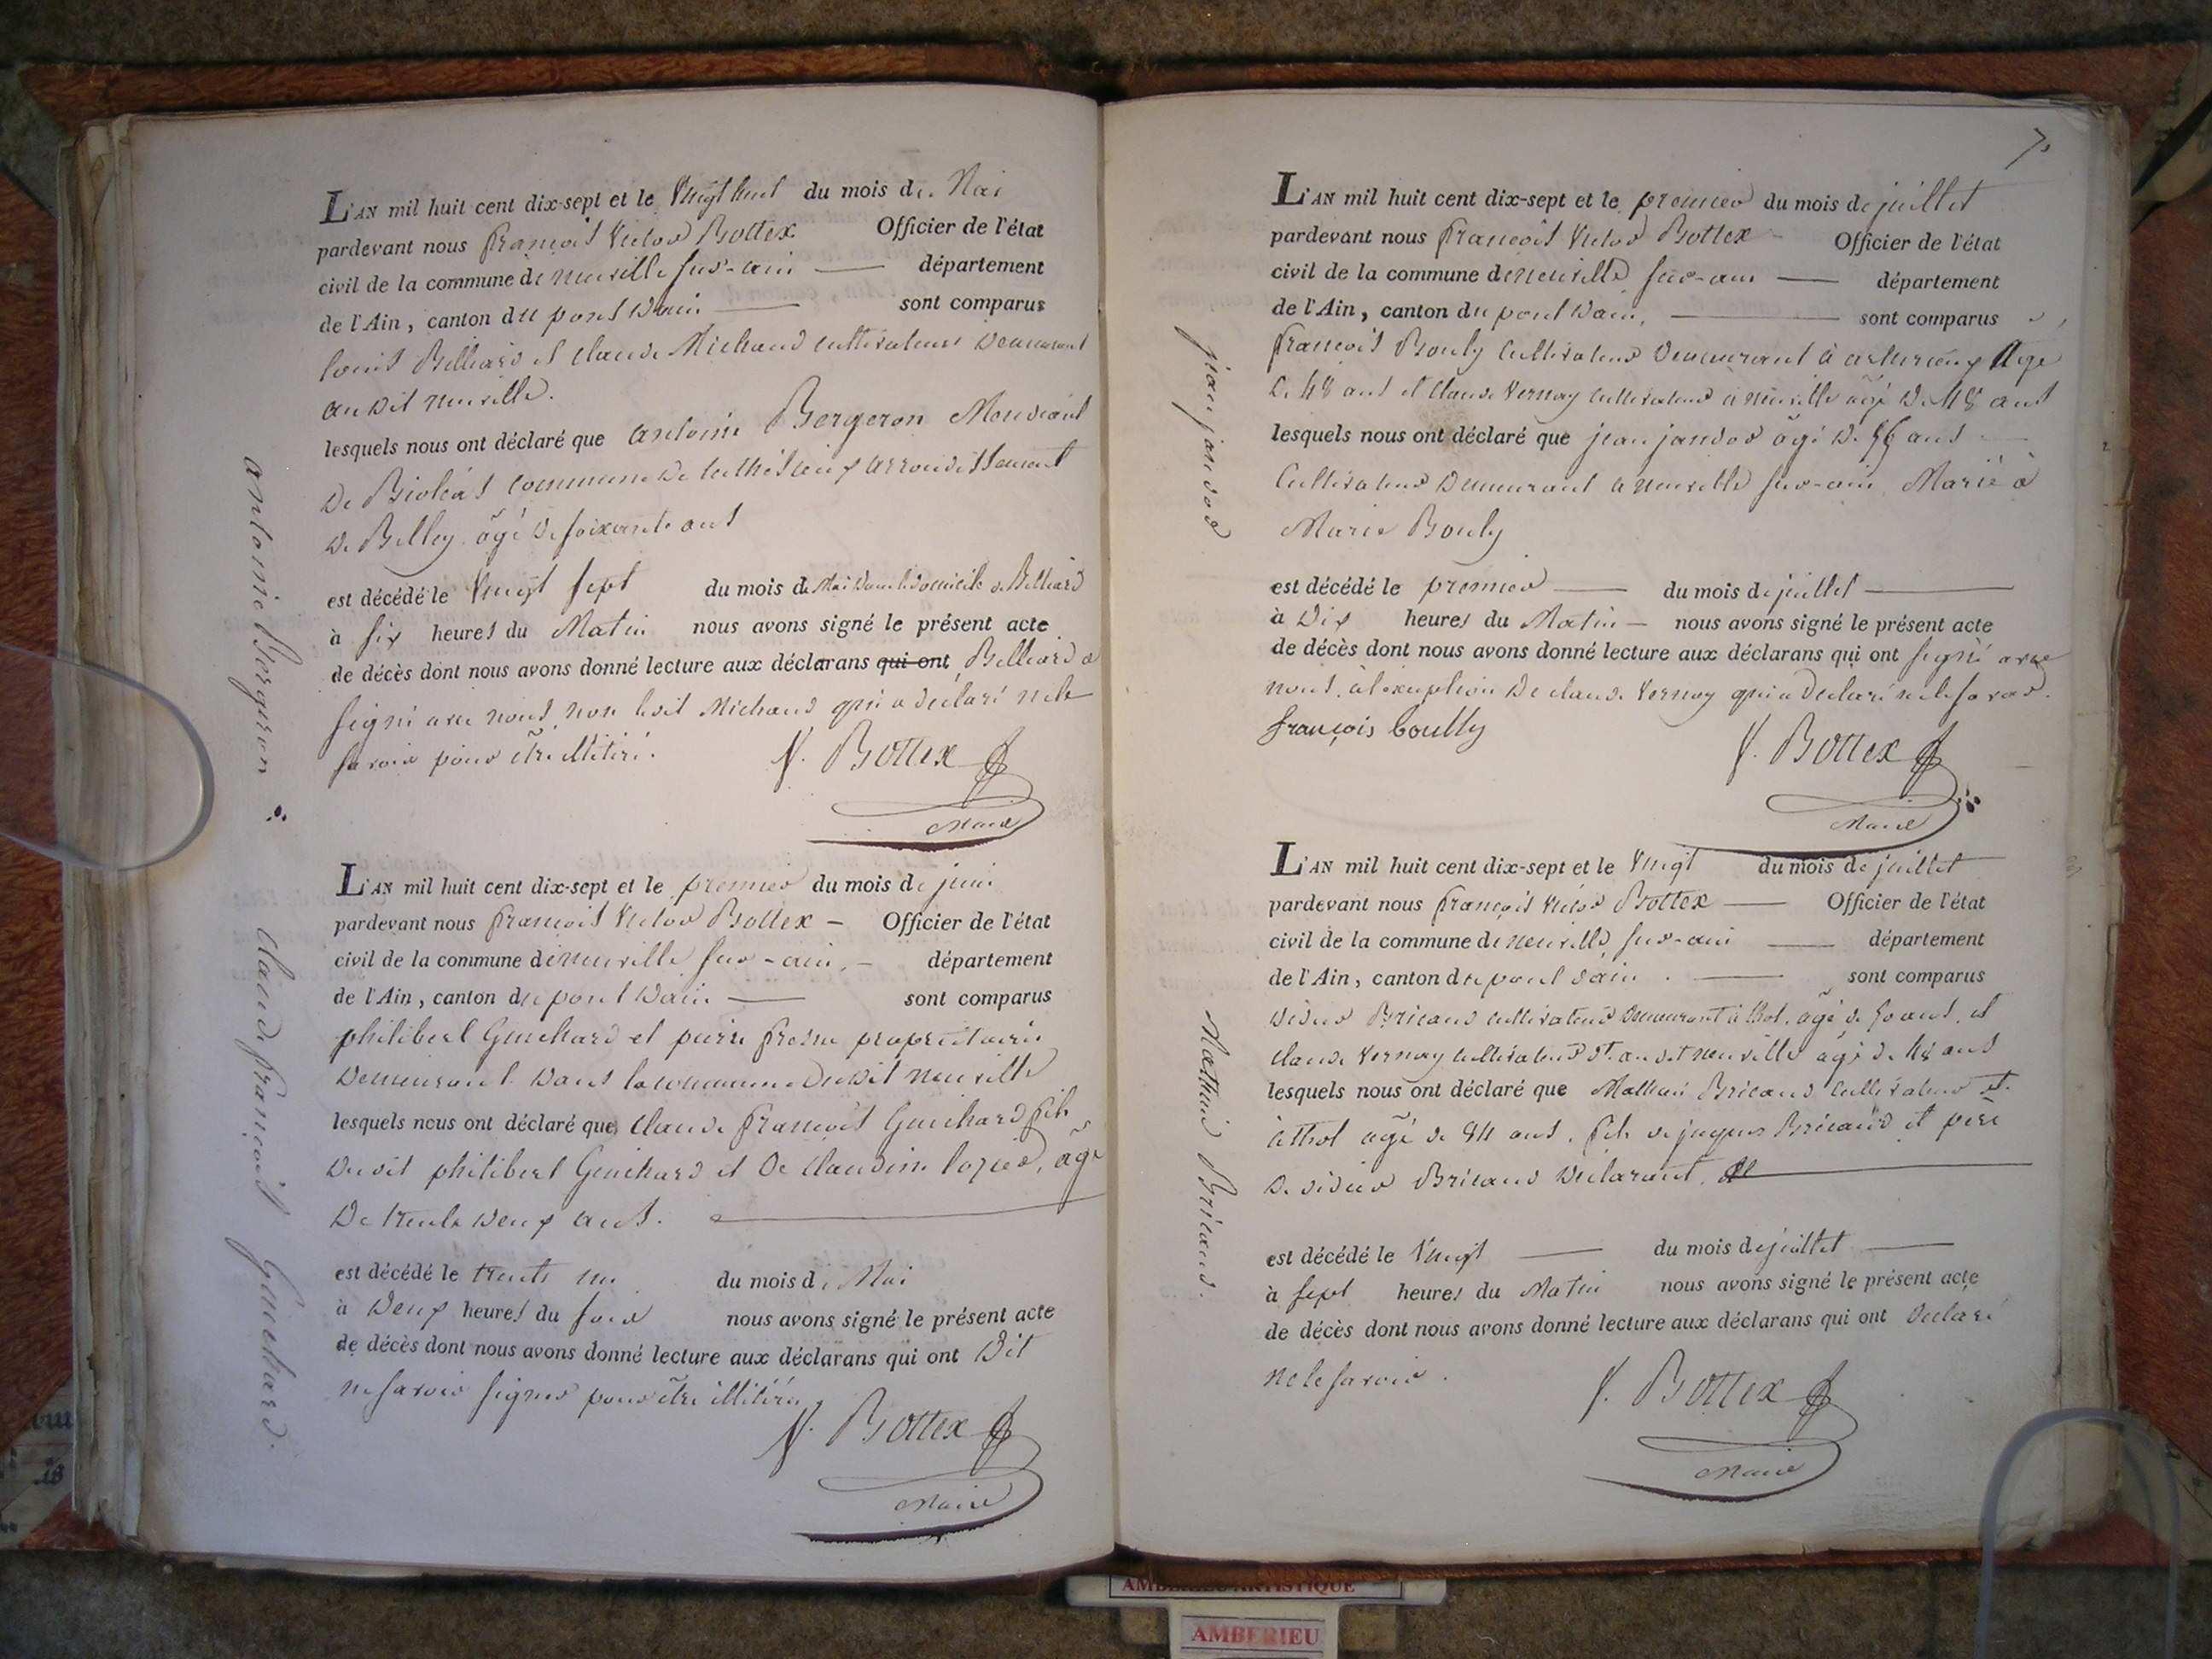 L'AN mil huit cent dix-sept et le Vingt huit du mois de Mai
pardevant nous françois Victor Bottex Officier de l'état
civil de la commune de neuville sur-ain département
de l'Ain, canton du pont Dain sont comparus
louis Billiard et claude Michaud cultivateurs Demeurant
audit neuville.
lesquels nous ont déclaré que antoine Bergeron Mendiant
De commune de arrondissement
De Belley âgé De soixante ans
est décédé le Vingt sept du mois de Mai dans le domicile de Billiard
à six heures du Matin nous avons signé le présent acte
de décès dont nous avons donné lecture aux déclarans qui ont Billiard a
signé avec nous non ledit Michaud qui a déclaré ne le
savoir pour être illitéré.
V. Bottex
Maire
antoine Bergeron
L'AN mil huit cent dix-sept et le premier du mois de juin
pardevant nous françois Victor Bottex Officier de l'état
civil de la commune de neuville sur-ain département
de l'Ain, canton du pont Dain sont comparus
philibert Guichard et pierre fresne proprietaires
Demeurant Dans la commune Dudit neuville
lesquels nous ont déclaré que Claude françois Guichard fils
Dudit philibert Guichard et De Claudine âgé
De trente Deux ans.
est décédé le trente un du mois de Mai
à Deux heures du soir nous avons signé le présent acte
de décès dont nous avons donné lecture aux déclarans qui ont Dit
ne savoir signer pour être illitéré
V. Bottex
Maire
Claude françois Guichard.
7
L'AN mil huit cent dix-sept et le premier du mois de juillet
pardevant nous françois Victor Bottex Officier de l'état
civil de la commune de neuville sur-ain département
de l'Ain, canton du pont Dain, sont comparus
françois Bouly Cultivateur Demeurant à Age
De 48 ans et Claude Vernay cultivateur à neuville âgé De 48 ans
lesquels nous ont déclaré que jean jandod âgé De 56 ans
Cultivateur Demeurant à neuville sur-ain, Marié à
Marie Bouly
est décédé le premier du mois de juillet
à Dix heures du Matin nous avons signé le présent acte
de décès dont nous avons donné lecture aux déclarans qui ont signé avec
nous, à l'exception De claude Vernay qui a déclaré ne le savoir.
françois boully
V. Bottex
Maire
jean jandod
L'AN mil huit cent dix-sept et le Vingt du mois de juillet
pardevant nous françois Victor Bottex Officier de l'état
civil de la commune de neuville sur-ain département
de l'Ain, canton du pont dain. sont comparus
Didier Bricaud cultivateur Demeurant à thol, âgé de 50 ans, et
claude Vernay cultivateur dt. audit neuville âgé de 48 ans
lesquels nous ont déclaré que Mathieu Bricaud Cultivateur dt.
à thol âgé de 84 ans, fils de jaques Bricaud et père
De didier Bricaud Déclarant.
est décédé le Vingt du mois de juillet
à sept heures du Matin nous avons signé le présent acte
de décès dont nous avons donné lecture aux déclarans qui ont Déclaré
ne le savoir.
V. Bottex
Maire
Mathieu Bricaud.
AMBERIEU ARTISTIQUE
AMBERIEU